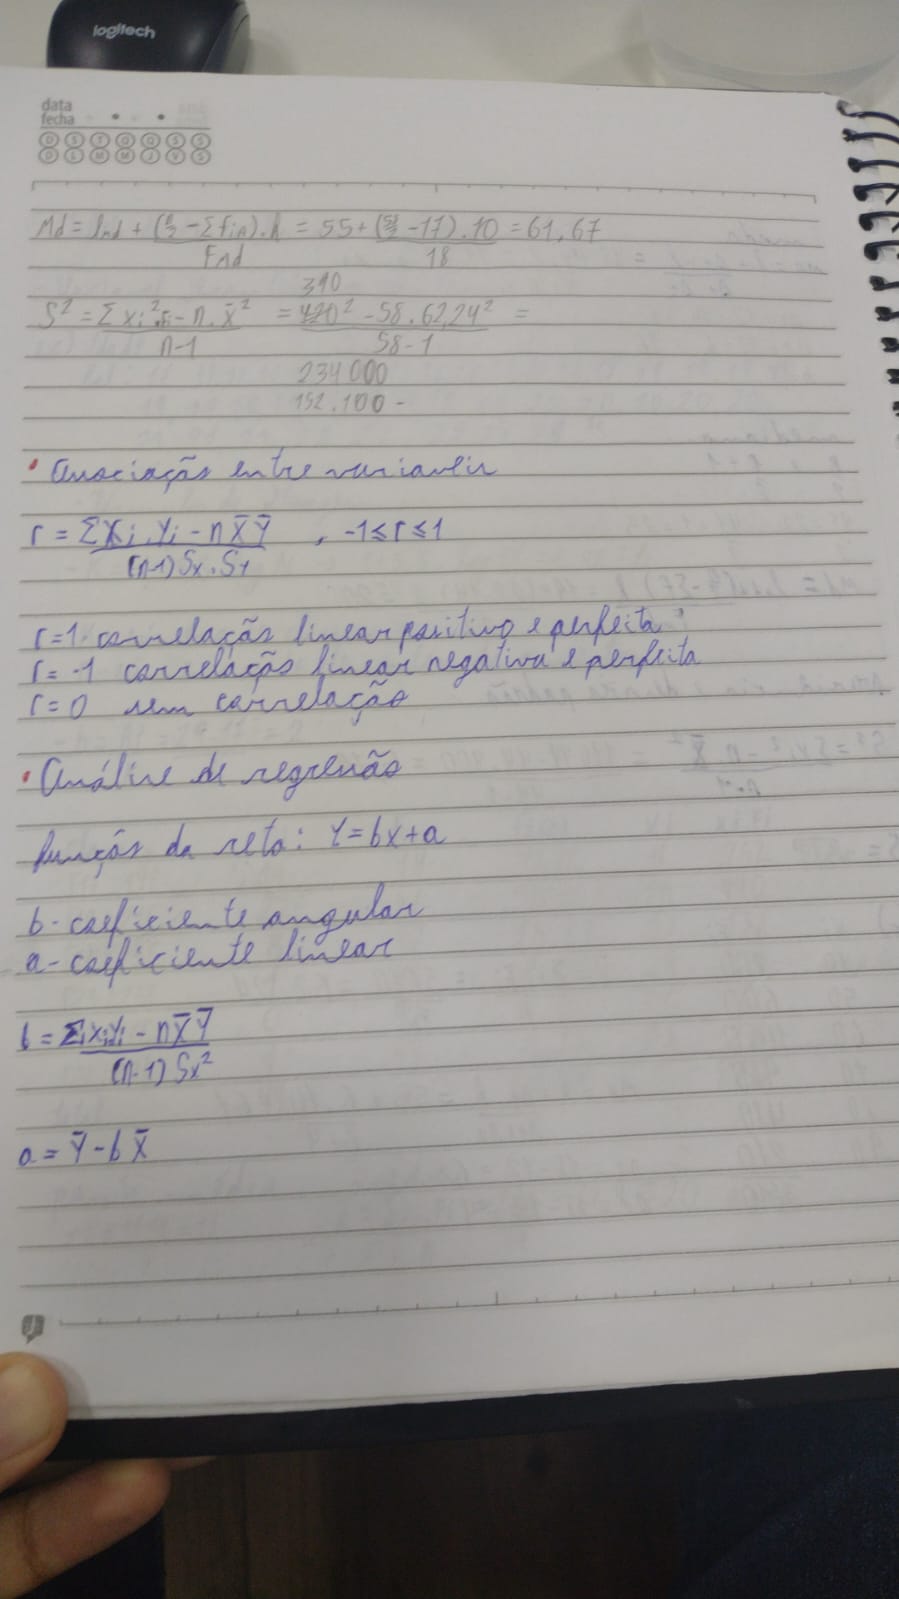 logitech
data
fecha
D S T Q Q S S
D L M M J V S
Md = lmd + (n/2 - Σfia).h / Fmd = 55 + (58/2 - 17).10 / 18 = 61,67
390
S² = Σxi².fi - n.x̄² / n-1 = 420² - 58.62,24² / 58-1 =
234000
152.100 -
• Associação entre variaveis
r = ΣXi.Yi - nX̄Ȳ / (n-1)Sx.Sy , -1≤r≤1
r=1 correlação linear positivo e perfeita
r=-1 correlação linear negativa e perfeita
r=0 sem correlação
• Análise de regressão
função da reta: Y=bx+a
b- coeficiente angular
a- coeficiente linear
b = Σxiyi - nX̄Ȳ / (n-1)Sx²
a = Ȳ - bX̄